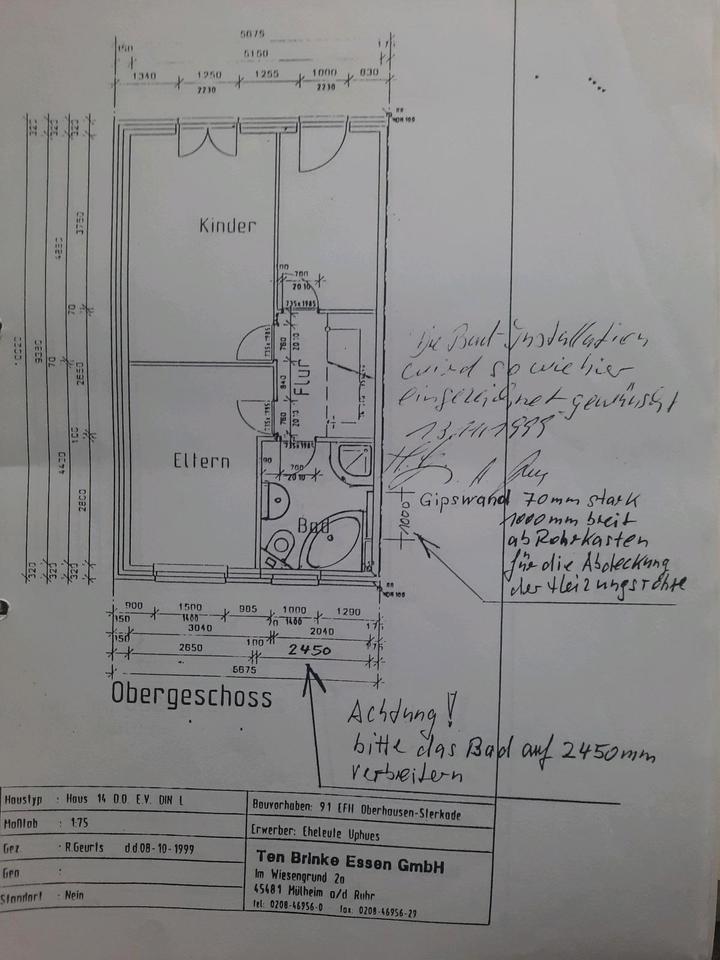 5675
150
17
5150
1340 1250 1255 1000 630
2230 2230
Kinder
320 320 320 320
3750
4880
10020 9380 70 70
2650
100
4430
2800
320 320 320 320
90 700
2010
735x1985
735x1985 760 2010
840
Flur
735x1985 760 2010
735x1985
90 700
2010
Eltern
Bad
1000
Die Bad-Installation
wird so wie hier
eingezeichnet gewünscht
13.11.1999
Gipswand 70mm stark
1000mm breit
ab Rohrkasten
für die Abdeckung
der Heizungsrohre
900 1500 985 1000 1290
1400 1400
150 3040 70 2040 17
150 2650 100 2450
5675
Obergeschoss
Achtung!
bitte das Bad auf 2450mm
verbreitern
Haustyp : Haus 14 D.O. E.V. DIN L
Maßtab : 1:75
Gez. : R.Geurts d.d.08-10-1999
Gen :
Standort : Nein
Bauvorhaben: 91 EFH Oberhausen-Sterkade
Erwerber: Eheleute Uphues
Ten Brinke Essen GmbH
Im Wiesengrund 2a
45481 Mülheim a/d Ruhr
tel: 0208-46956-0 fax: 0208-46956-29